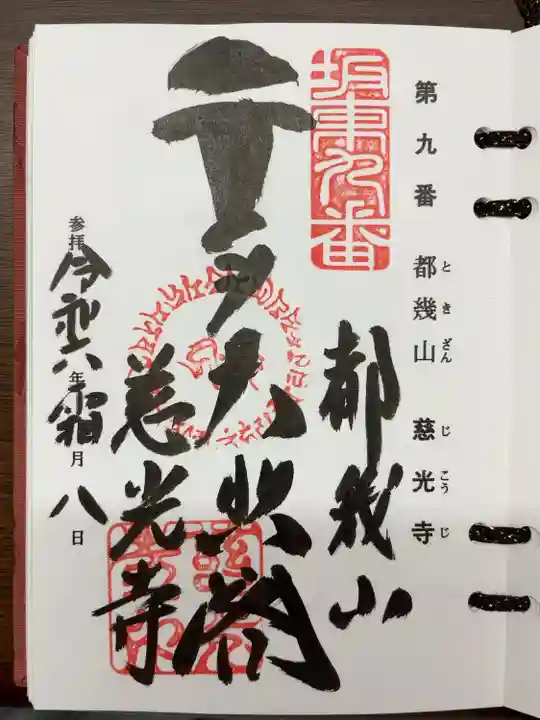 第九番 都幾山 慈光寺
と き ざん じ こう じ
坂東九番
都幾山
大悲閣
慈光寺
参拝 令和六年霜月八日